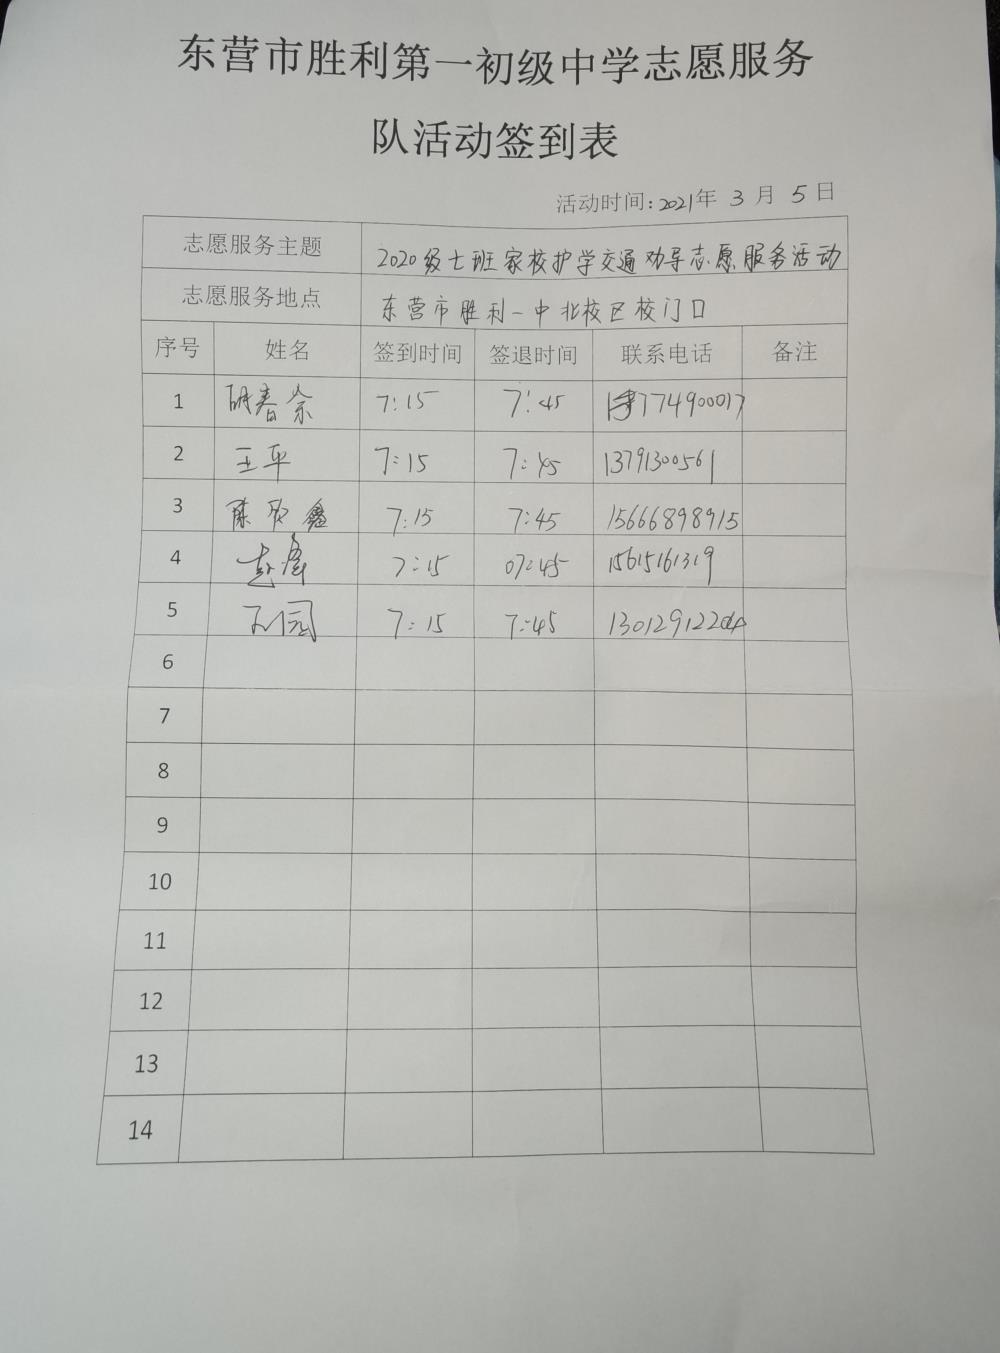 东营市胜利第一初级中学志愿服务
队活动签到表
活动时间:2021年 3 月 5 日
志愿服务主题 2020级七班家校护学交通劝导志愿服务活动
志愿服务地点 东营市胜利一中北校区校门口
序号 姓名 签到时间 签退时间 联系电话 备注
1 7:15 7:45
2 王平 7:15 7:45 13791300561
3 陈欣鑫 7:15 7:45 15666898915
4 7:15 07:45 15615161319
5 7:15 7:45 13012912204
6
7
8
9
10
11
12
13
14